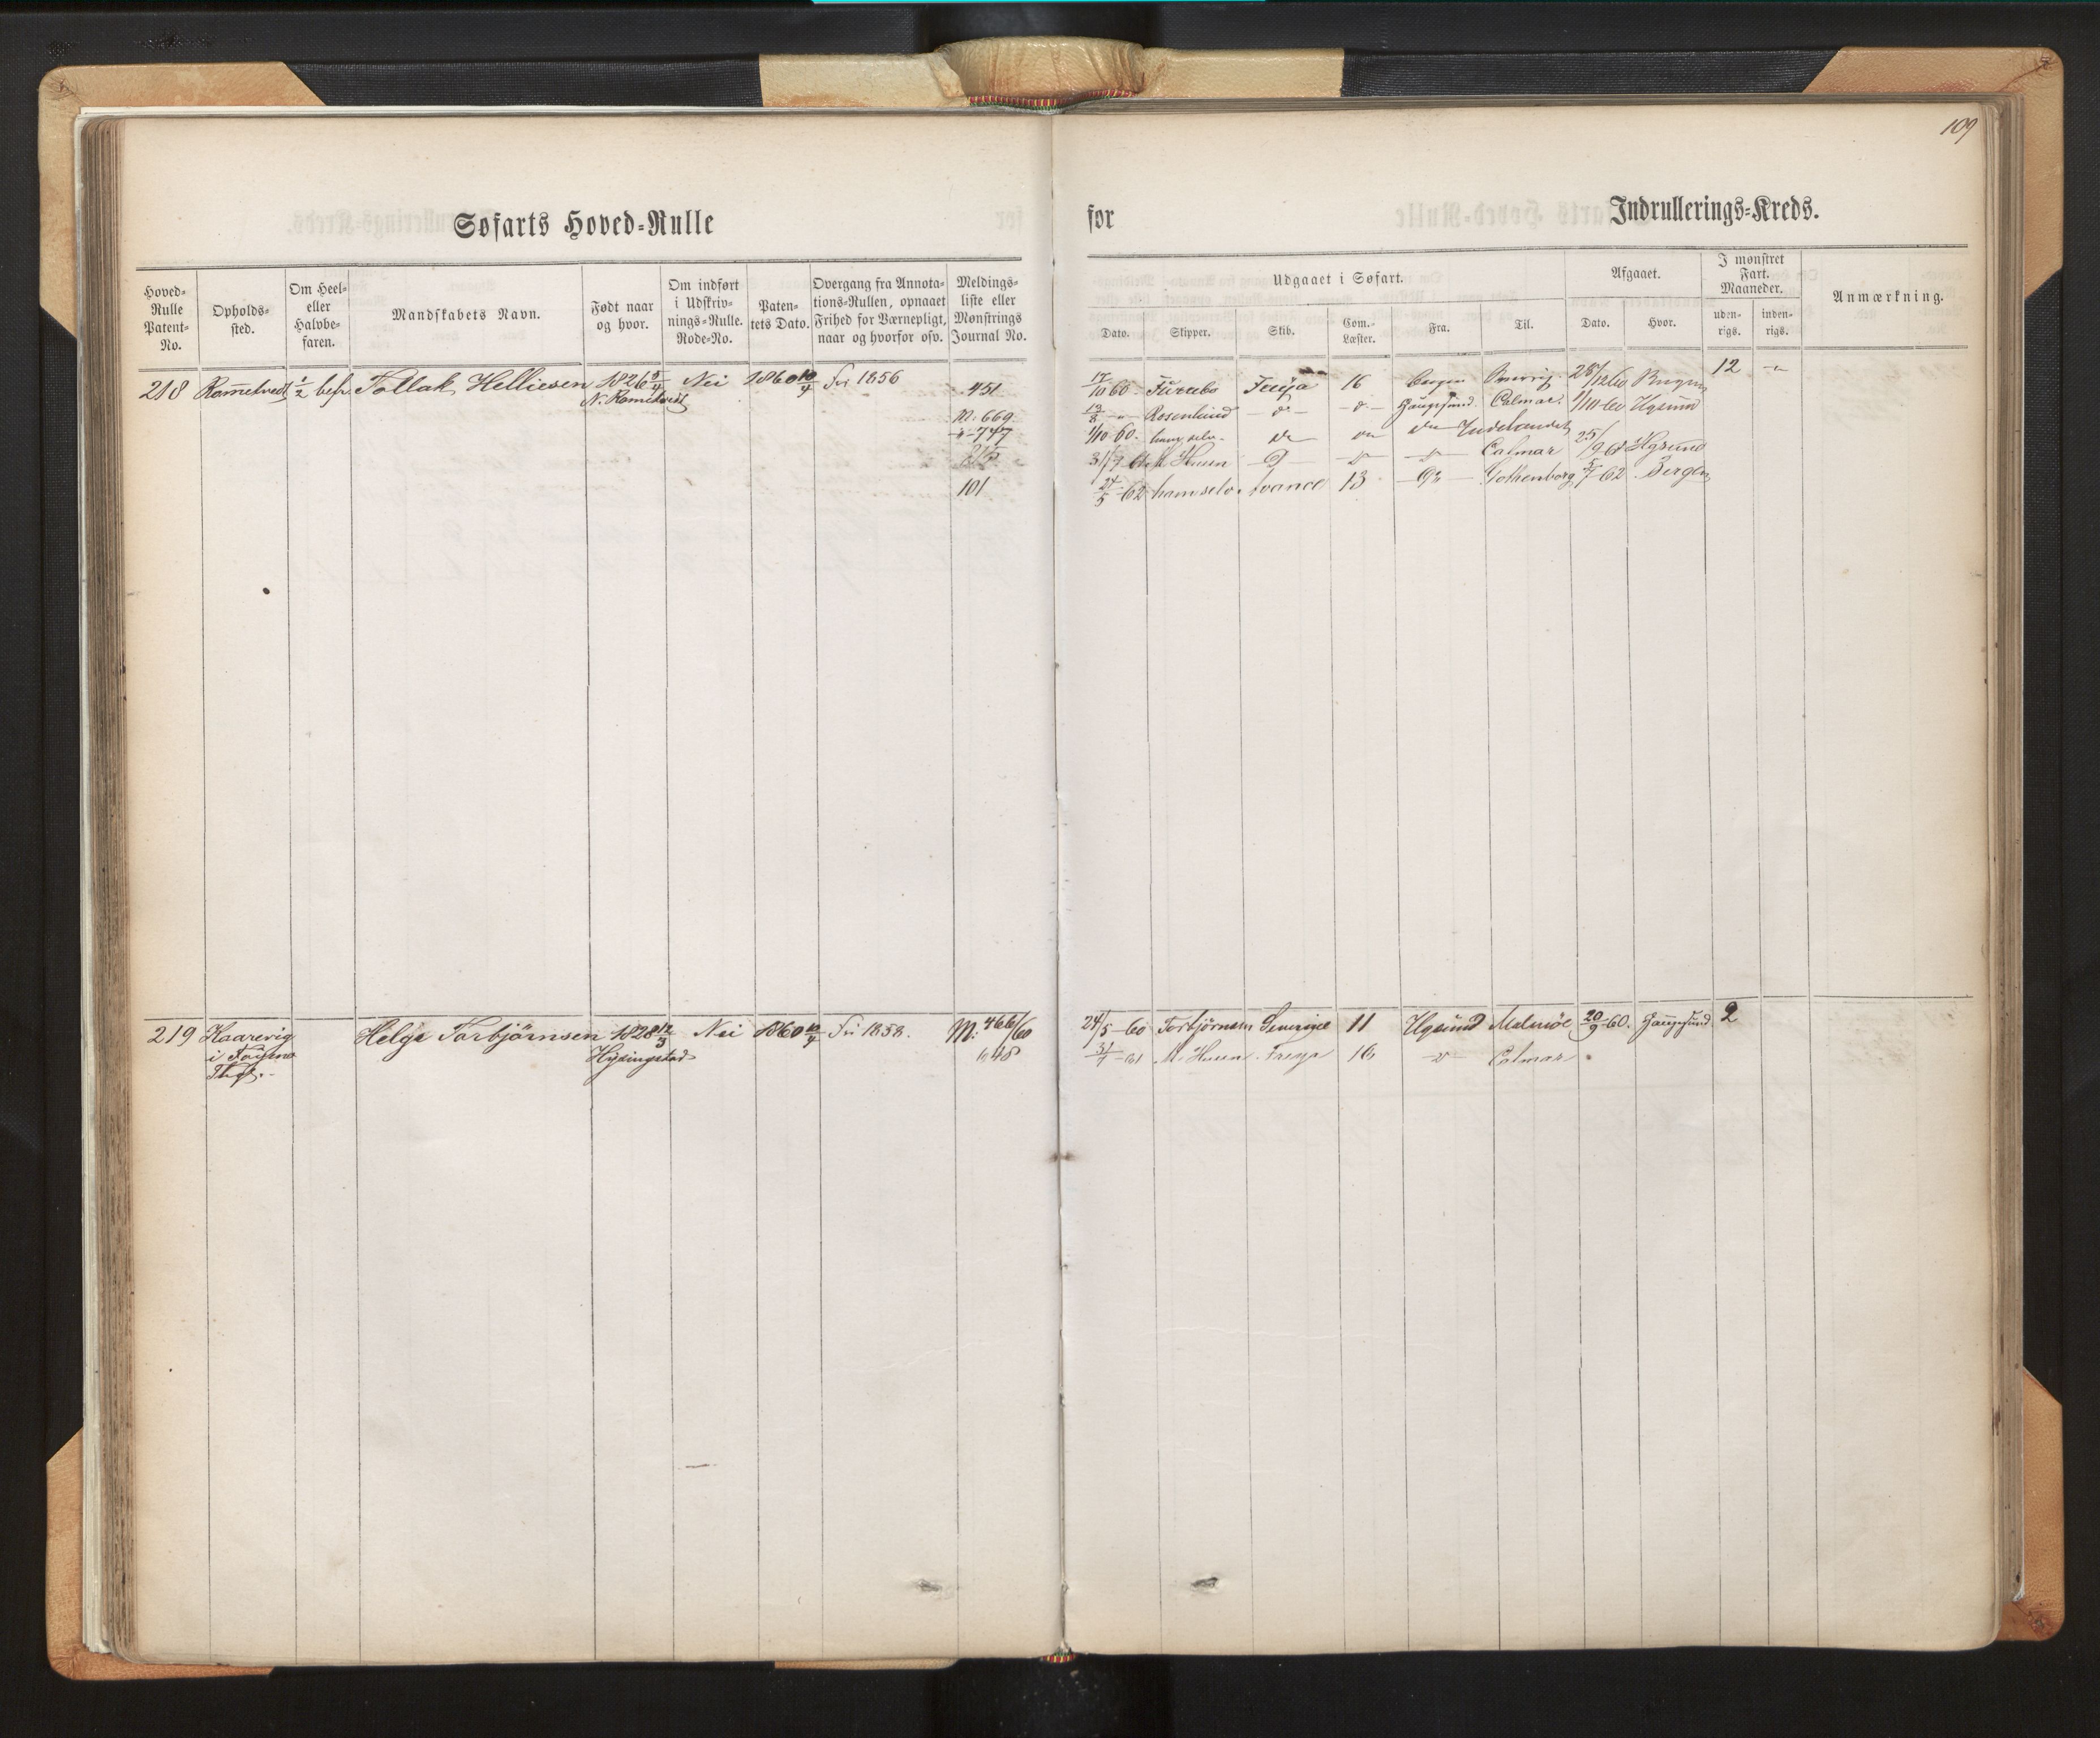 109
Søfarts Hoved-Rulle
for
Indrullerings-Kreds.
Hoved-Rulle Patent-No.
Opholds-sted.
Om Heel- eller Halvbe-faren.
Mandskabets Navn.
Født naar og hvor.
Om indført i Udskriv-nings-Rulle. Rode-No.
Paten-tets Dato.
Overgang fra Annota-tions-Rullen, opnaaet Frihed for Værnepligt, naar og hvorfor osv.
Meldings-liste eller Mønstrings Journal No.
Udgaaet i Søfart.
Dato.
Skipper.
Skib.
Com.-Læster.
Fra.
Til.
Afgaaet.
Dato.
Hvor.
I mønstret Fart. Maaneder.
uden-rigs.
inden-rigs.
Anmærkning.
218 1/2 bef. Tollak Helliesen 1826 Nei 1860 10/4 Fri 1856 451 17/10 60 16 Bergen 28/12 60 Bergen 12
N. M: 669 Rosenlund Haugesund Calmar 1/10 60 Hgsund
747 1/10 60 Indlandet
31/7 61 Calmar 25/9 61 Hgsund
101 24/5 62 ham selv 13 Gothenborg 5/7 62 Bergen
219 Kaarevig Helge Torbjörnsen 1828 12/3 Nei 1860 10/4 Fri 1858. M: 466/60 24/5 60 Torbjörnsen 11 Hgsund Malmöe 20/9 60. Haugesund 2
i 648 31/7 61 Freya 16 Calmar